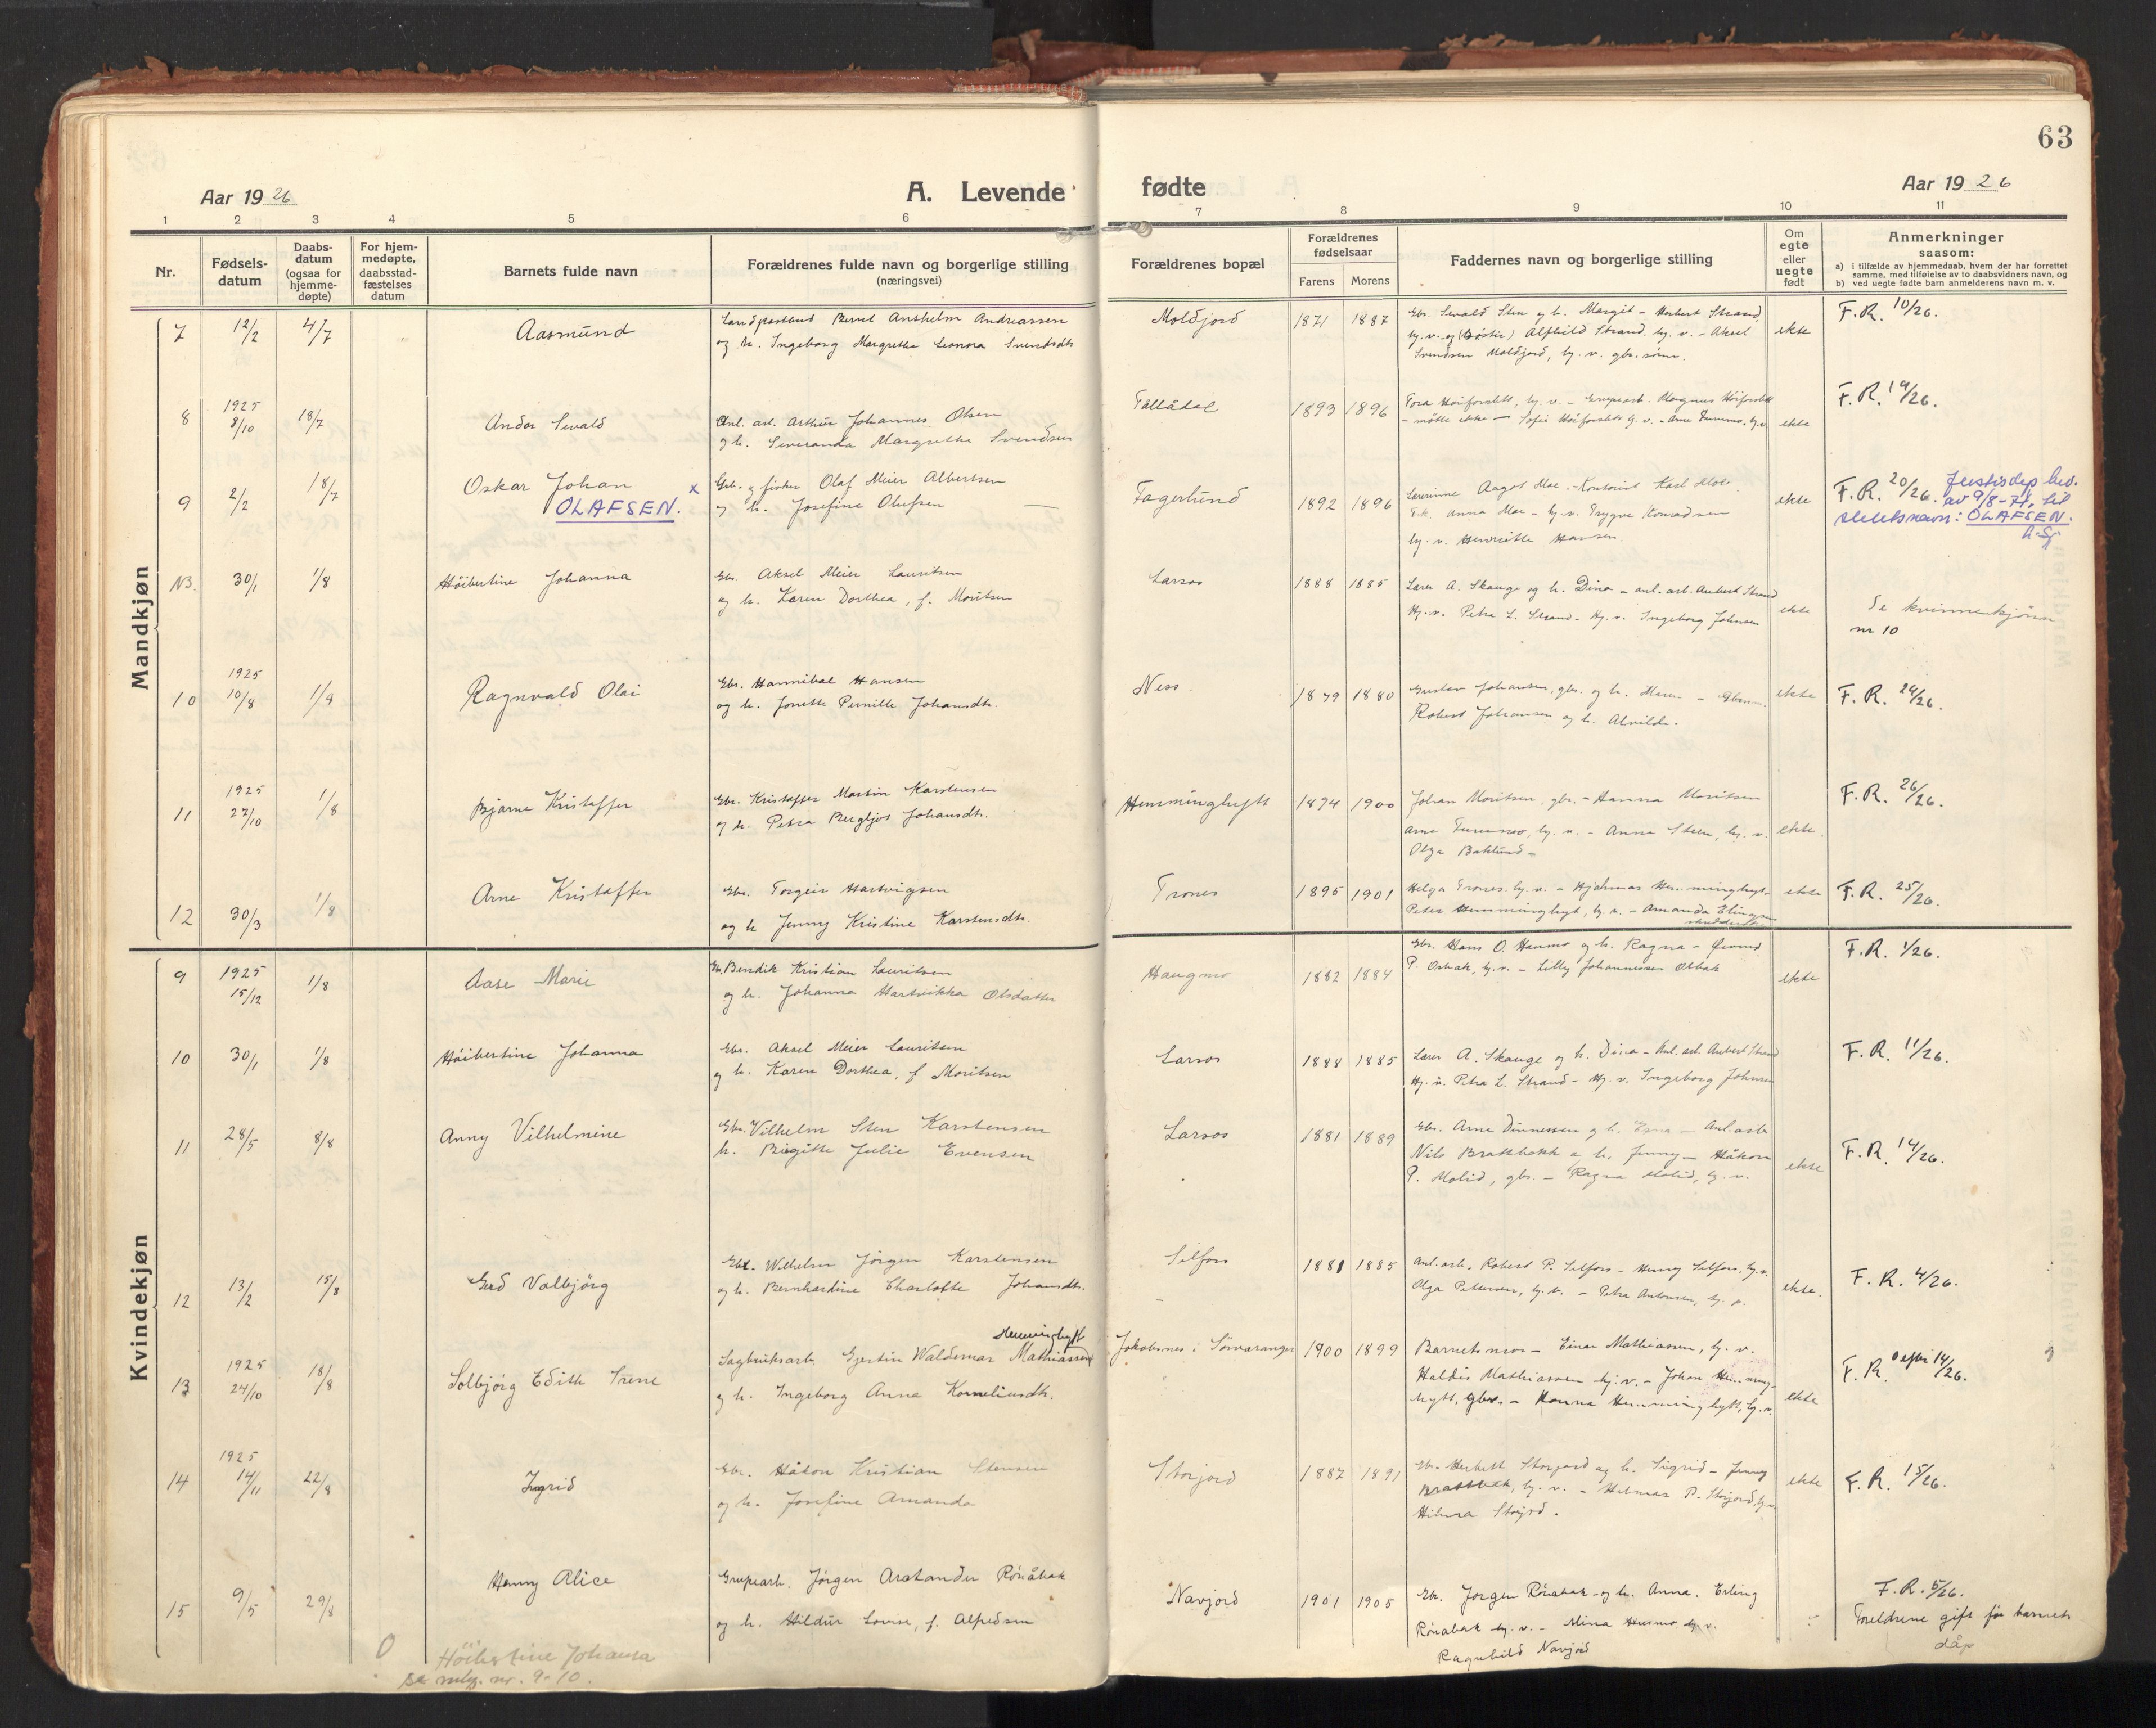 63
Aar 1926
A. Levende
fødte
Aar 1926
1 2 3 4 5 6 7 8 9 10 11
Nr.
Fødsels-
datum
Daabs-
datum
(ogsaa for
hjemme-
døpte)
For hjem-
medøpte,
daabsstad-
fæstelses
datum
Barnets fulde navn
Forældrenes fulde navn og borgerlige stilling
(næringsvei)
Forældrenes bopæl
Forældrenes
fødselsaar
Farens Morens
Faddernes navn og borgerlige stilling
Om
egte
eller
uegte
født
Anmerkninger
saasom:
a) i tilfælde av hjemmedaab, hvem der har forrettet
samme, med tilføielse av to daabsvidners navn, og
b) ved uegte fødte barn anmelderens navn m. v.
Mandkjøn
7 12/2 4/7 Aasmund
Landpostbud Bernt Anshelm Andreassen
og h. Ingeborg Margrethe Leonora Svendsdtr
Moldjord 1871 1887
Gbr. Sevald Sten og h. Margit - Herbert Strand,
og (søster) Alfhild Strand. hj. v. - Aksel
Svendsen Moldjord, hj. v. gbr. sønn.
ekte
F.R. 10/26.
8 1925
8/10 18/7 Andor Sevald
Anl. arb. Arthur Johannes Olsen
og h. Severanda Margrethe Svendsen
Tållådal 1893 1896
Tora Høiforslett, hj. v. - Grupearb. Magnus Høiforslett
- møtte ikke - Sofie Høiforslett hj. v. - Arne Furumo, hj. v.
ekte
F.R. 19/26.
9 2/2 18/7 Oskar Johan x
OLAFSEN.
Gbr. og fisker Olaf Meier Albertsen
og h. Josefine Olufsen
Fagerlund 1892 1896
Lærerinne Aagot Moe. - Kontorist Karl Moe
Frk. Anna Moe - hj. v. Trygve Konradsen
hj. v. Henriette Hansen.
ekte
F.R. 20/26. Justisdep bev.
av 9/8-71, til
slektsnavn: OLAFSEN.
N3. 30/1 1/8 Høibertine Johanna
Gbr. Aksel Meier Lauritsen
og h. Karen Dorthea, f. Moritsen
Larsos 1888 1885
Lærer A. Skauge og h. Dina - anl. arb. Aubert Strand
Hj. v. Petra L. Strand - Hj. v. Ingeborg Johnsen
ekte
Se kvinnekjønn
nr 10
10 1925
10/8 1/9 Ragnvald Olai
Gbr. Hannibal Hansen
og h. Jonette Pernille Johansdtr.
Ness. 1879 1880
Gustav Johansen, gbr. og h. Maren -
Robert Johansen og h. Alvilde.
ekte
F.R. 24/26.
11 1925
27/10 1/8 Bjarne Kristoffer
Gbr. Kristoffer Martin Karstensen
og h. Petra Bergljot Johansdtr.
Hemminghytt 1874 1900
Johan Moritsen, gbr. - Hanna Moritsen
Arne Furumo, hj. v. - Anna Steen, hj. v.
Olga Baklund -
ekte.
F.R. 26/26.
12 30/3 1/8 Arne Kristoffer
Gbr. Torgeir Hartvigsen
og h Jenny Kristine Karstensdtr.
Trones 1895 1901
Helga Trones hj. v. - Hjalmar Hemminghyt-
Peter Hemminghyt, hj. v. - Amanda
ekte
F.R. 25/26.
Kvindekjøn
9 1925
15/12 1/8 Aase Marie
Gbr. Bendik Kristian Lauritsen
og h. Johanna Hartvikka Olsdatter
Haugmo 1882 1884
Gbr. Hans O. Haumo og h. Ragna - Øivind
P. Osbak, hj. v. - Lilly Johannessen Osbak
ekte
F.R. 1/26.
10 30/1 1/8 Høibertine Johanna
Gbr. Aksel Meier Lauritsen
og h. Karen Dorthea, f Moritsen
Larsos 1888 1885
Lærer A. Skauge og h. Dina - Anl. arb. Aubert Strand
Hj. v. Petra L. Strand - Hj. v. Ingeborg Johnsen
F.R. 11/26.
11 28/5 8/8 Anny Vilhelmine
Gbr. Vilhelm Sten Karstensen
h. Birgitte Julie Evensen
Larsos 1881 1889
Gbr. Arne Dinnessen og h. - Anl. arb
Nils Brakkbakk og h. Jenny - Håkon
P. Molid, gbr. - Ragna Molid, hj. v.
ekte
F.R. 14/26.
12 13/2 15/8 Gerd Valbjørg
Gbr. Wilhelm Jørgen Karstensen
og h. Bernhardine Charlotte Johansdtr.
Selfors 1881 1885
Anl. arb. Robert P. Selfors - Henny Selfors, hj. v.
Olga Petersen, hj. v. - Petra Antonsen, hj. v.
ekte.
F.R. 4/26.
13 1925
24/10 18/8 Solbjørg Edith Irene
Hemminghytt
Sagbruksarb. Gjestin Waldemar Mathiassen
og h. Ingeborg Anna Korneliusdtr.
Jakobsnes i Sørvaranger 1900 1899
Barnets mor - Einar Mathiassen, hj. v.
Haldis Mathiassen hj. v. - Johan Hemming-
hytt, gbr. - Hanna Hemminghytt, hj. v.
ekte
F.R. 14/26.
14 1925
14/11 22/8 Ingrid
Gbr. Håkon Kristian Stensen
og h. Josefine Amanda
Storjord 1887 1891
Gbr. Herbert Storjord og h. Sigrid - Jenny
Brattbak, hj. v. - Hilmar P. Storjord, hj. v.
Hilma Storjord.
ekte
F.R. 15/26.
15 9/5 29/8 Henny Alice
Grupearb. Jørgen Arctander Rønåbak
og h. Hildur Lovise, f. Alfredsen
Navjord 1901 1905
Gbr. Jørgen Rønabak og h. Anna. Erling
Rønabak hj. v. - Mina Husmo hj. v.
Ragnhild Navjord
F.R. 5/26.
Foreldrene gift før barnets
dåp
0 Höibertine Johanna
se mlg. nr. 9-10.